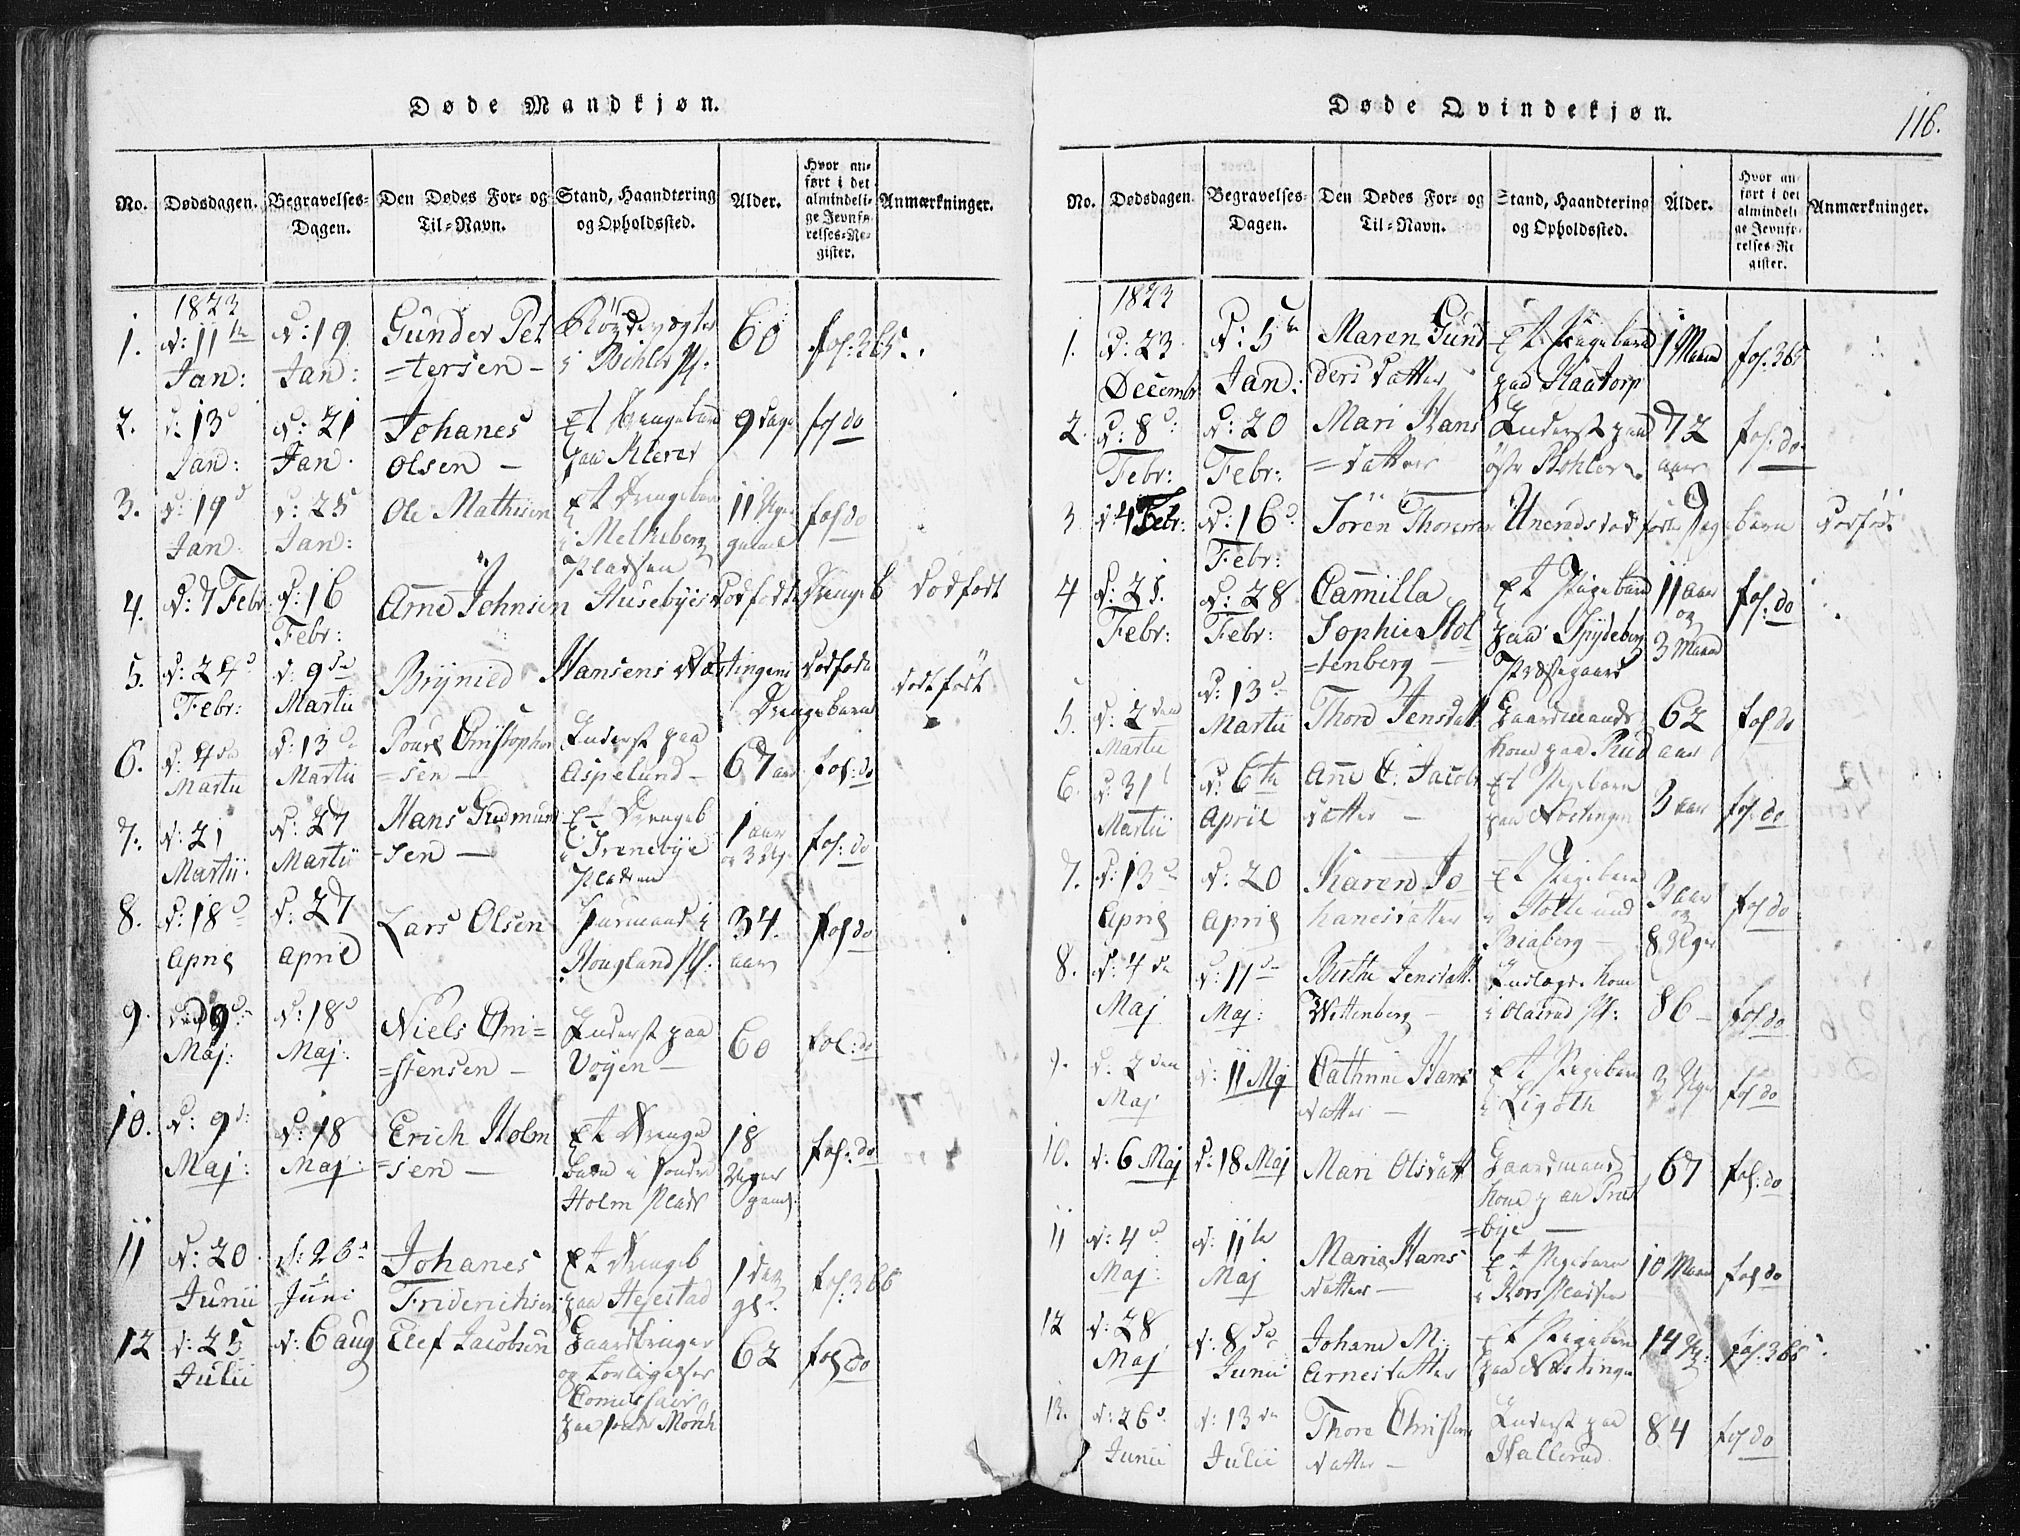 Døde Mandkjøn.
No. Dødsdagen. Begravelses-Dagen. Den Dødes For- og Til-Navn. Stand, Haandtering og Opholdssted. Alder. Hvor anført i det almindelige Jevnførelses-Register. Anmærkninger.
1823
1. d: 11te Jan: d: 19 Jan: Gunder Pet=tersen – i Böhler Pl. 60 fol: 365.
2. d: 13d Jan: d: 21 Jan: Johanes Olsen – Et Drengebarn paa Klever 9 Dage fol do
3. d: 19d Jan: d: 25 Jan: Ole Mathisen Et Drengebarn i Melkeberg Pladsen 11 Uger gamel fol do
4. d: 7 Febr d: 16 Febr: Arne Johnsen Husebyes Dødfødte Drengeb Dødfødt
5. d: 24d Febr: d: 9de Martii Brynild Hansens Næstingens Dødfødte Drengebarn Dødfødt
6. d: 4de Martii d: 13de Martii Povel Christopher=sen – Inderst paa Aspelund – 67 aar fol: do
7. d: 21 Martii d: 27 Martii Hans Gudmund=sen – Et Drengeb i Trenebye Pladsen 1 aar og 3 Ug. fol: do
8. d: 18d April d: 27 April Lars Olsen Huusmand i Hougland Pl: 34. aar fol do
9. den 9d Maj: d: 18d Maj: Niels Chri=stensen – Inderst paa Vøyen – 60 fol: do
10. d: 9d: Maj: d: 18 Maj: Erich Holm=sen – Et Drenge barn i søndre Holm Plads 18 Uger gaml. fol: do
11 d: 20 Junii d: 26d Juni Johanes Friderichsen Et Drengeb paa Hejestad 1 dag gl. fol: 366
12 d: 25 Julii d: 6 Aug Elef Jacobsen Gaardbruger og Forligelses Comissair paa søndre Mörch 62 fol do
Døde Qvindekjøn.
116.
No. Dødsdagen. Begravelses-Dagen. Den Dødes For- og Til-Navn. Stand, Haandtering og Opholdssted. Alder. Hvor anført i det almindelige Jevnførelses-Register. Anmærkninger.
1823
1. d: 23 Decembr d: 5te Jan: Maren Gunders datter Et Pigebarn paa Kaatorp 1 Maaned fol. 365
2. d: 8d: Febr: d: 20 Febr: Mari Hans=datter Inderst paa östr Böhler 72 aar fol: do
3. d: 4 Febr: d: 16d. Febr: Sören Thorens Unerads dødfødte Pigebarn Dødfødt
4 d: 21. Febr: d: 28 Febr: Camilla Sophie Stol=tenberg – Et Pigebarn paa Spydeberg Præstegaard 11 aar og 3 Maaned fol: do
5. d: 2den Martii d: 13d Martii Thore Jensdatt Gaardmands kone paa Rud 62 aar fol do
6. d: 31t Martii d: 6te April Anne C: Jacobs datter – Et Pigebarn paa Nöstingen 3 aar fol: do
7. d: 13de April d: 20 April Karen Jo hanesdatter Et Pigebarn i Stotte und Biaberg – 3 aar og 8 Uger fol do
8. d: 4de Maj d: 11de Maj: Birthe Jensdatt. Wittenberg – Indlagt kone i Olasrud Pl: 86 – fol do
9. d: 2den Maj d: 11 Maj Cathrine Hans datter – Et Pigebarn i Ligoth 3 Uger fol do
10. d: 6 Maj d: 18 Maj Mari Olsdatt Gaardmands kone paa Præst=bye – 67 fol: do
11 d: 4d Maj: d: 11te Maj Maria Hans datter – Et Pigebarn i Hors Pladsen 10 Maan fol do
12 d: 28 Maj d: 8de Junii Johane M: Arnesdatter Et Pigebarn paa Næstingen 14 Ug: fol: 365.
13. d: 26d. Junii d: 13de Julii Thore Christens datter – Inderst paa Hallerud 84 fol do